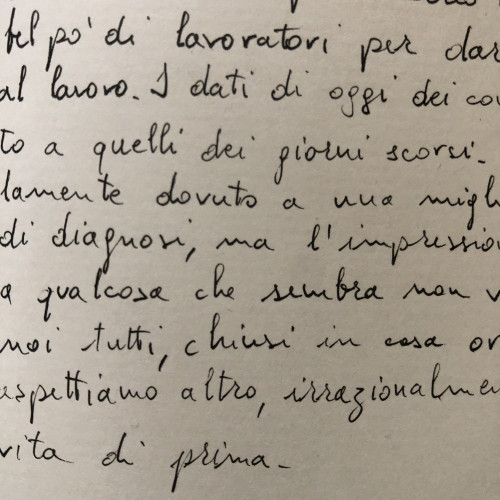 bel po' di lavoratori per dar
al lavoro. I dati di oggi dei con
to a quelli dei giorni scorsi.
lamente dovuto a una migli
di diagnosi, ma l'impression
a qualcosa che sembra non v
noi tutti, chiusi in casa or
aspettiamo altro, irrazionalmen
vita di prima.